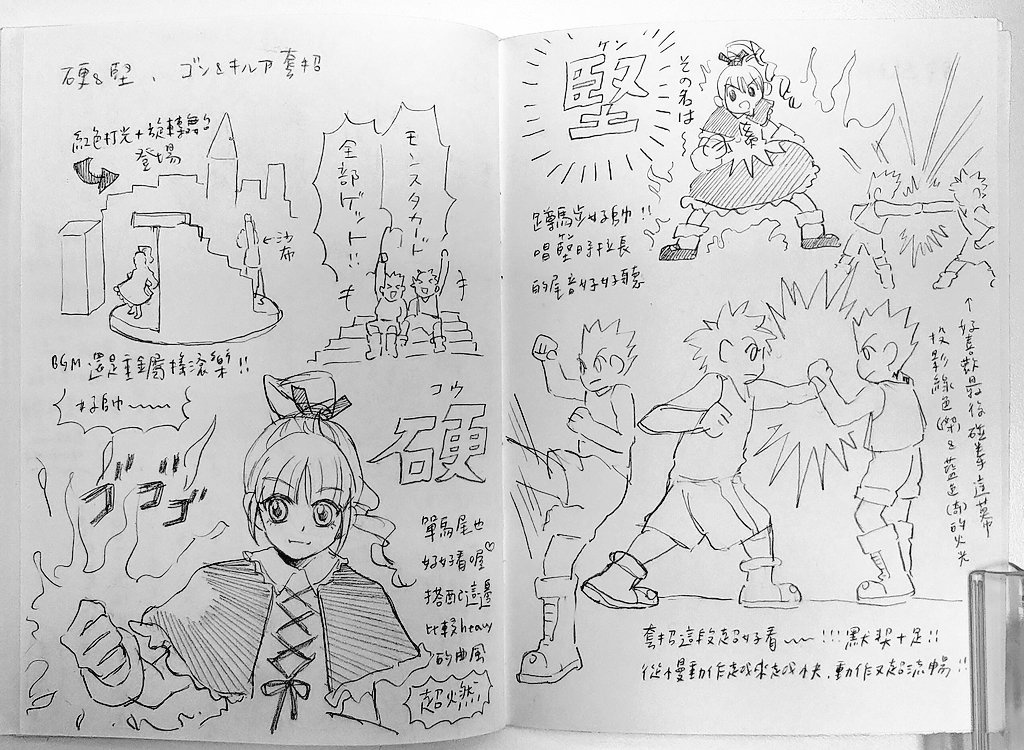 硬&堅、ゴン&キルア套招
紅色打光+旋轉舞台
登場
沙布
モンスタカード
全部ゲット!!
キ
キ
BGM還是重金屬搖滾樂!!
好帥~~~
ゴゴゴ
コウ
硬
單馬尾也
好好看喔♡
搭配這邊
比較heavy
的曲風
超火燃
ケン
堅
その名は~
蹲馬步好帥!!
唱堅時拉長
ケン
的尾音好好聽
↑好喜歡最後碰拳這幕
投影綠色(傑)&藍色(奇)的火光
套招這段超好看~~!!!默契十足!!
從慢動作越來越快,動作又超流暢!!